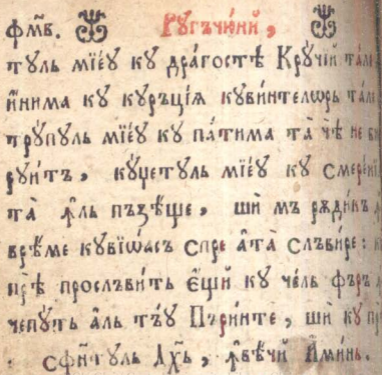 фм҃в. Ругъчю́нй,
тꙋль мїе́ꙋ кꙋ дра́гостѣ Крꙋчі́й
и́нима кꙋ кꙋръці́ѧ кꙋви́нтелѡрь та́ле
трꙋ́пꙋль мїе́ꙋ кꙋ па́тима та̀ че не
рꙋи́тъ, кꙋ́џетꙋль мїе́ꙋ кꙋ смере́нї
та̀ ꙟ҆ль пъзѣ́ще, шѝ мъ рѫди́нѣ
врѣ́ме кꙋвїѡ́асъ спре а҆́та слъви́ре:
прѣ прослъви́тъ є҆́щй кꙋ че́ль фъръ
чепꙋ́ть а҆́ль тъ́ꙋ Пъри́нте, шѝ кꙋ
сфи́нтꙋль Дх҃ъ, ꙟ҆ ве́чй А҆ми́нь.